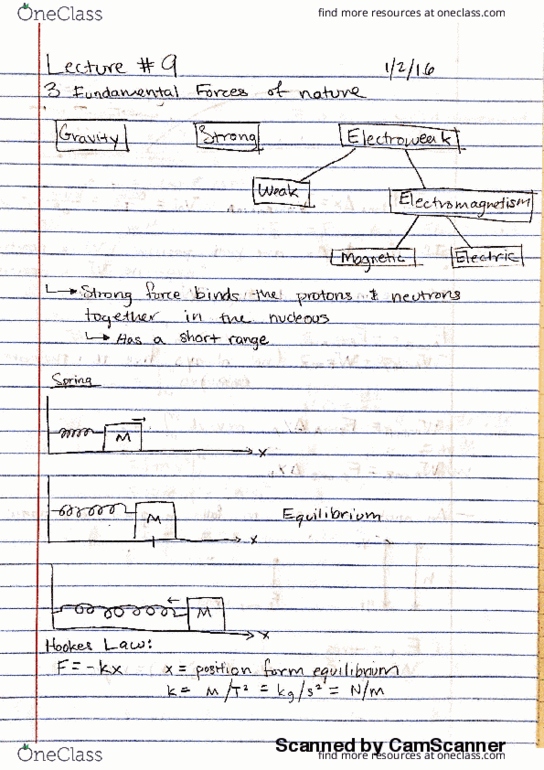 OneClass
find more resources at oneclass.com
Lecture # 9 1/2/16
3 Fundamental Forces of nature
Gravity Strong Electroweak
Weak Electromagnetism
Magnetic Electric
↳ Strong force binds the protons & neutrons
together in the nucleous
↳ Has a short range
Spring
M
x
M Equilibrium
x
M
x
Hookes Law:
F = -kx x = position form equilibrium
k = M/T² = kg/s² = N/m
Scanned by CamScanner
OneClass
find more resources at oneclass.com